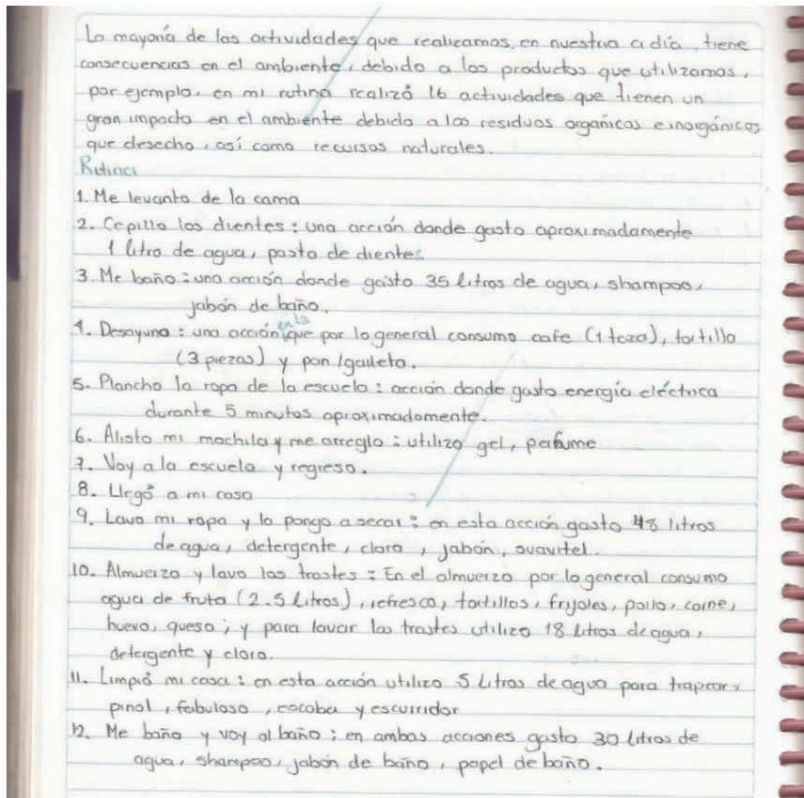 La mayoría de las actividades que realizamos, en nuestro a día, tiene
consecuencias en el ambiente, debido a los productos que utilizamos,
por ejemplo, en mi rutina realizó 16 actividades que tienen un
gran impacto en el ambiente debido a los residuos orgánicos e inorgánicos
que desecho, así como recursos naturales.
Rutina
1. Me levanto de la cama
2. Cepillo los dientes: una acción donde gasto aproximadamente
1 litro de agua, pasta de dientes.
3. Me baño: una acción donde gasto 35 litros de agua, shampoo,
jabón de baño.
4. Desayuno: una acción en la que por lo general consumo cafe (1 taza), tortilla
(3 piezas) y pan/galleta.
5. Plancho la ropa de la escuela: acción donde gasto energía eléctrica
durante 5 minutos aproximadamente.
6. Alisto mi mochila y me arreglo: utilizo gel, perfume
7. Voy a la escuela y regreso.
8. Llegó a mi casa
9. Lavo mi ropa y lo pongo a secar: en esta acción gasto 48 litros
de agua, detergente, cloro, jabón, suavitel.
10. Almuerzo y lavo los trastes: En el almuerzo por lo general consumo
agua de fruta (2.5 litros), refresco, tortillas, frijoles, pollo, carne,
huevo, queso; y para lavar los trastes utilizo 18 litros de agua,
detergente y cloro.
11. Limpió mi casa: en esta acción utilizo 5 litros de agua para trapear,
pinol, fabuloso, escoba y escurridor
12. Me baño y voy al baño: en ambas acciones gasto 30 litros de
agua, shampoo, jabón de baño, papel de baño.